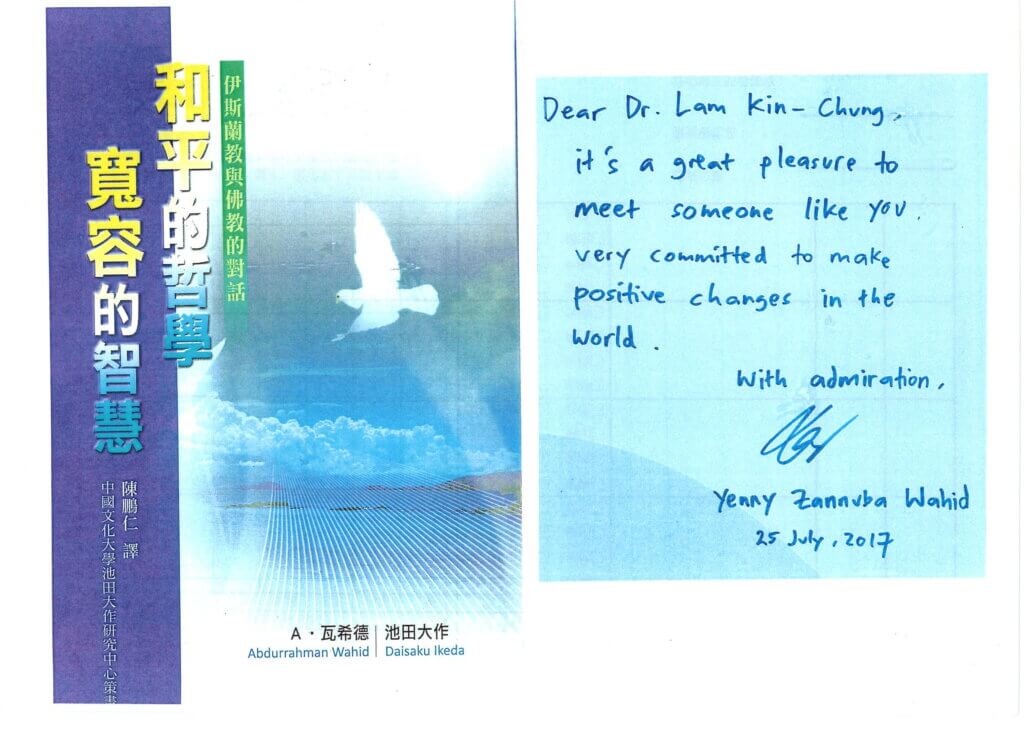 和平的哲學
寬容的智慧
伊斯蘭教與佛教的對話
陳鵬仁 譯
中國文化大學池田大作研究中心策畫
A・瓦希德
Abdurrahman Wahid
池田大作
Daisaku Ikeda
Dear Dr. Lam Kin-Chung,
it's a great pleasure to
meet someone like you.
very committed to make
positive changes in the
world.
With admiration,
Yenny Zannuba Wahid
25 July, 2017